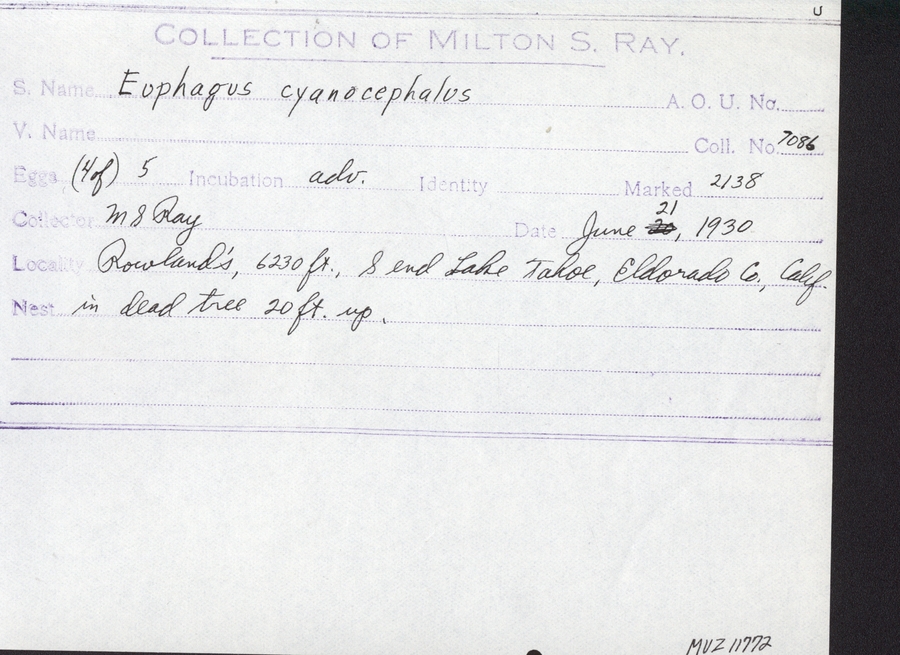 U
COLLECTION OF MILTON S. RAY.
S. Name Euphagus cyanocephalus A. O. U. No.
V. Name Coll. No 7086
Eggs (4 of) 5 Incubation adv. Identity Marked 2138
Collector M S Ray Date June 20 21, 1930
Locality Rowland's, 6230 ft., S end Lake Tahoe, Eldorado Co., Calif.
Nest in dead tree 20 ft. up.
MVZ 11772